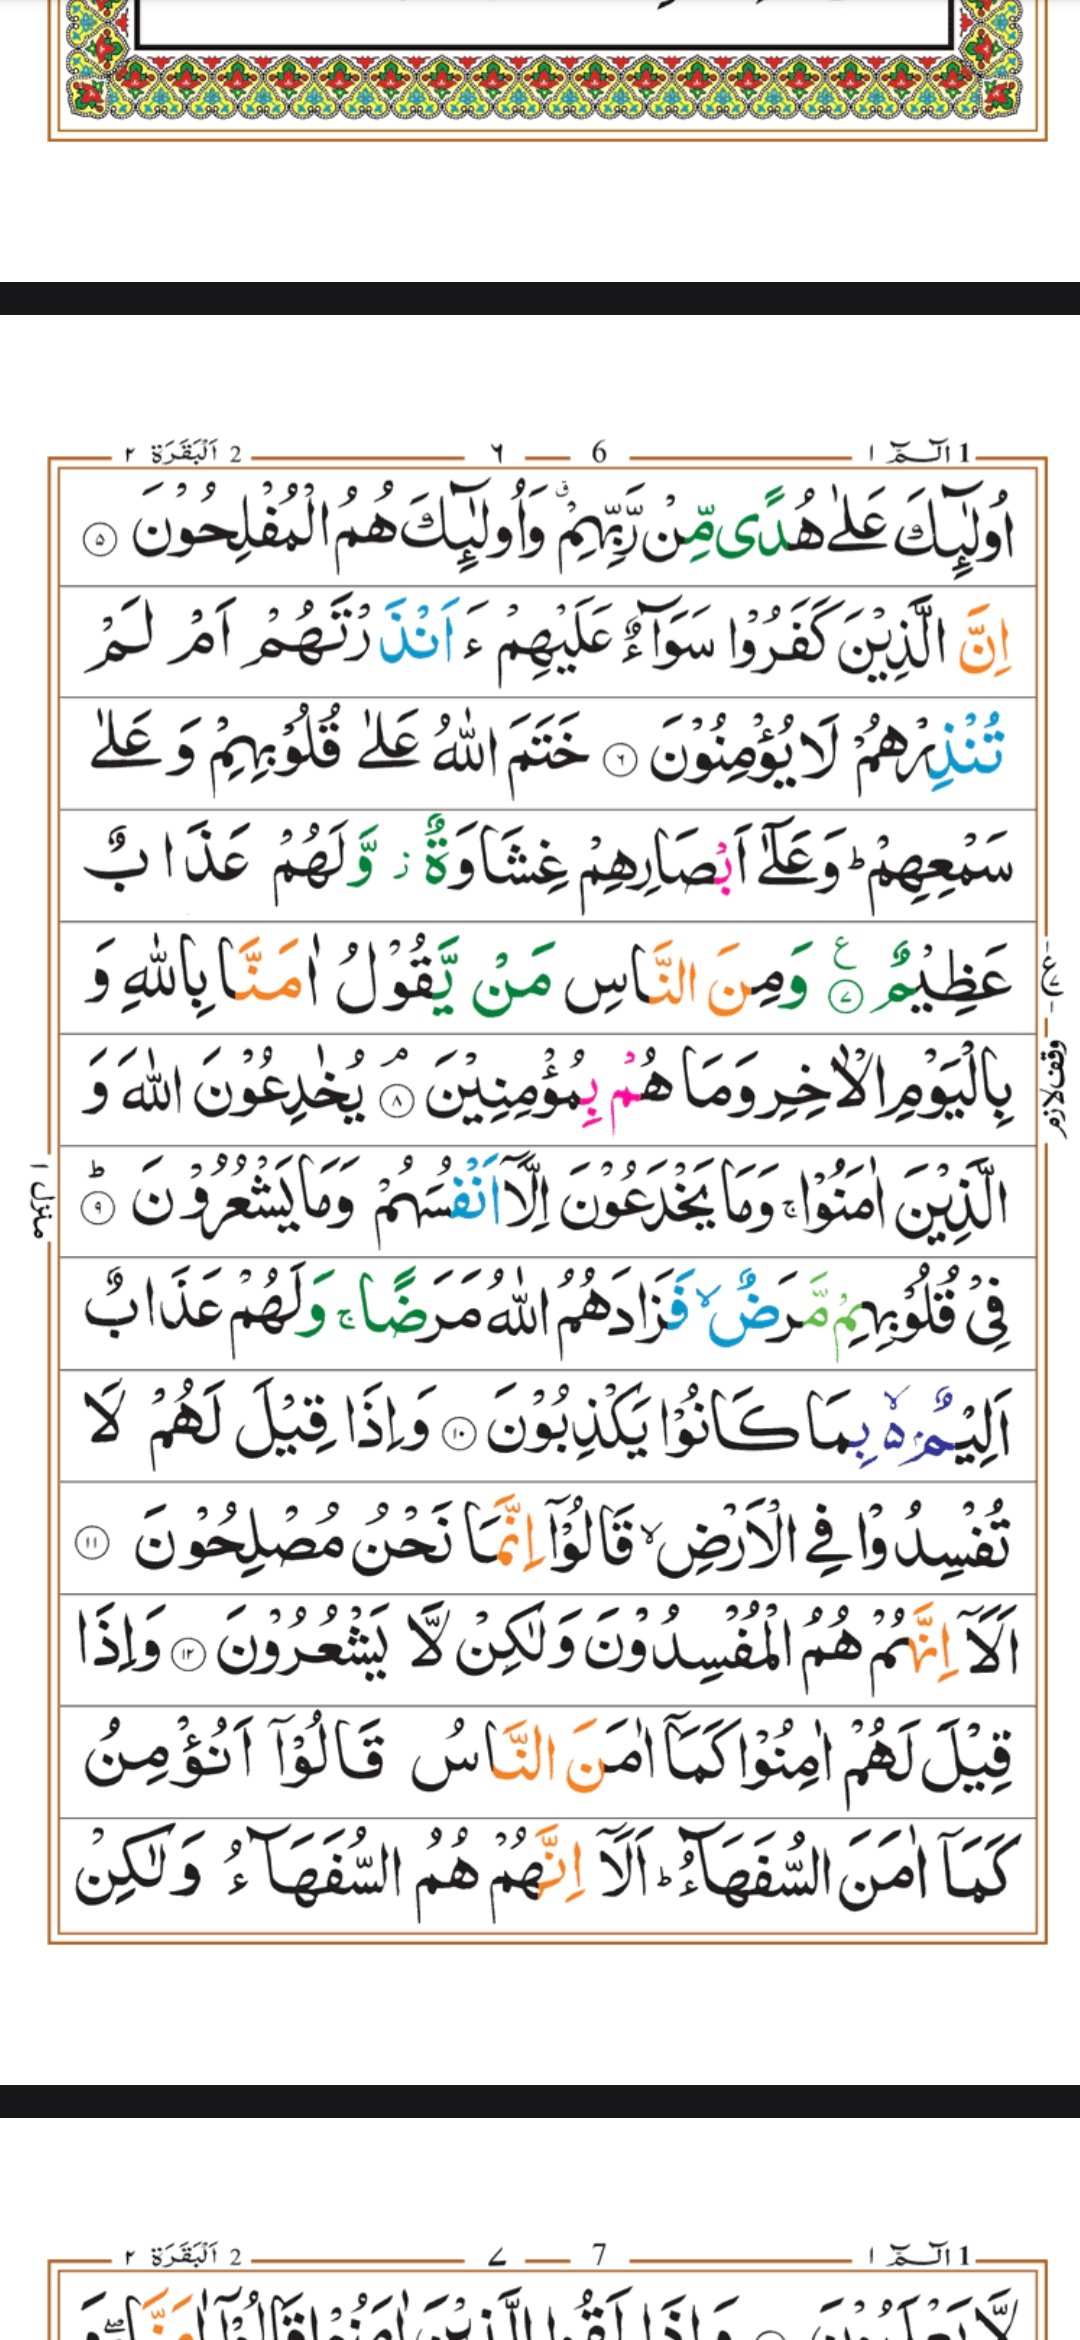 1 الٓـمّٓ ١ 6 ٦ 2 اَلْبَقَرَة ٢
اُولٰٓئِكَ عَلٰى هُدًى مِّنْ رَّبِّهِمْ ۗ وَاُولٰٓئِكَ هُمُ الْمُفْلِحُوْنَ ۵
اِنَّ الَّذِيْنَ كَفَرُوْا سَوَآءٌ عَلَيْهِمْ ءَاَنْذَرْتَهُمْ اَمْ لَمْ
تُنْذِرْهُمْ لَا يُؤْمِنُوْنَ ۶ خَتَمَ اللّٰهُ عَلٰى قُلُوْبِهِمْ وَ عَلٰى
سَمْعِهِمْ ؕ وَعَلٰٓى اَبْصَارِهِمْ غِشَاوَةٌ ز وَّلَهُمْ عَذَابٌ
عَظِيْمٌ ۷ ع وَمِنَ النَّاسِ مَنْ يَّقُوْلُ اٰمَنَّا بِاللّٰهِ وَ
بِالْيَوْمِ الْاٰخِرِ وَمَا هُمْ بِمُؤْمِنِيْنَ ۘ ۸ يُخٰدِعُوْنَ اللّٰهَ وَ
الَّذِيْنَ اٰمَنُوْا ۚ وَمَا يَخْدَعُوْنَ اِلَّآ اَنْفُسَهُمْ وَمَا يَشْعُرُوْنَ ؕ ۹
فِيْ قُلُوْبِهِمْ مَّرَضٌ ۙ فَزَادَهُمُ اللّٰهُ مَرَضًا ۚ وَلَهُمْ عَذَابٌ
اَلِيْمٌ ۢ ۙ۵ بِمَا كَانُوْا يَكْذِبُوْنَ ۱۰ وَاِذَا قِيْلَ لَهُمْ لَا
تُفْسِدُوْا فِي الْاَرْضِ ۙ قَالُوْٓا اِنَّمَا نَحْنُ مُصْلِحُوْنَ ۱۱
اَلَآ اِنَّهُمْ هُمُ الْمُفْسِدُوْنَ وَلٰكِنْ لَّا يَشْعُرُوْنَ ۱۲ وَاِذَا
قِيْلَ لَهُمْ اٰمِنُوْا كَمَآ اٰمَنَ النَّاسُ قَالُوْٓا اَنُؤْمِنُ
كَمَآ اٰمَنَ السُّفَهَآءُ ؕ اَلَآ اِنَّهُمْ هُمُ السُّفَهَآءُ وَلٰكِنْ
ع
وقف لازم
منزل ١
1 الٓـمّٓ ١ 7 ۷ 2 اَلْبَقَرَة ٢
لَّا يَعْلَمُوْنَ وَاِذَا لَقُوا الَّذِيْنَ اٰمَنُوْا قَالُوْٓا اٰمَنَّا ۖ وَ